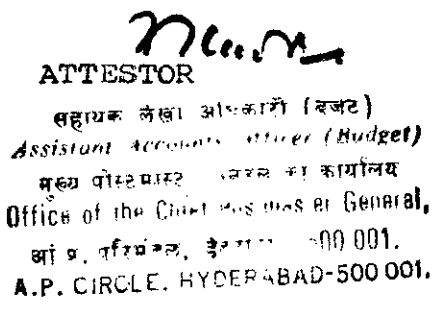 ATTESTOR
सहायक लेखा अधिकारी (बजट)
Assistant Accounts Officer (Budget)
मुख्य पोस्टमास्टर जनरल का कार्यालय
Office of the Chief Postmaster General,
आं प्र. परिमंडल, 500 001.
A.P. CIRCLE. HYDERABAD-500 001.